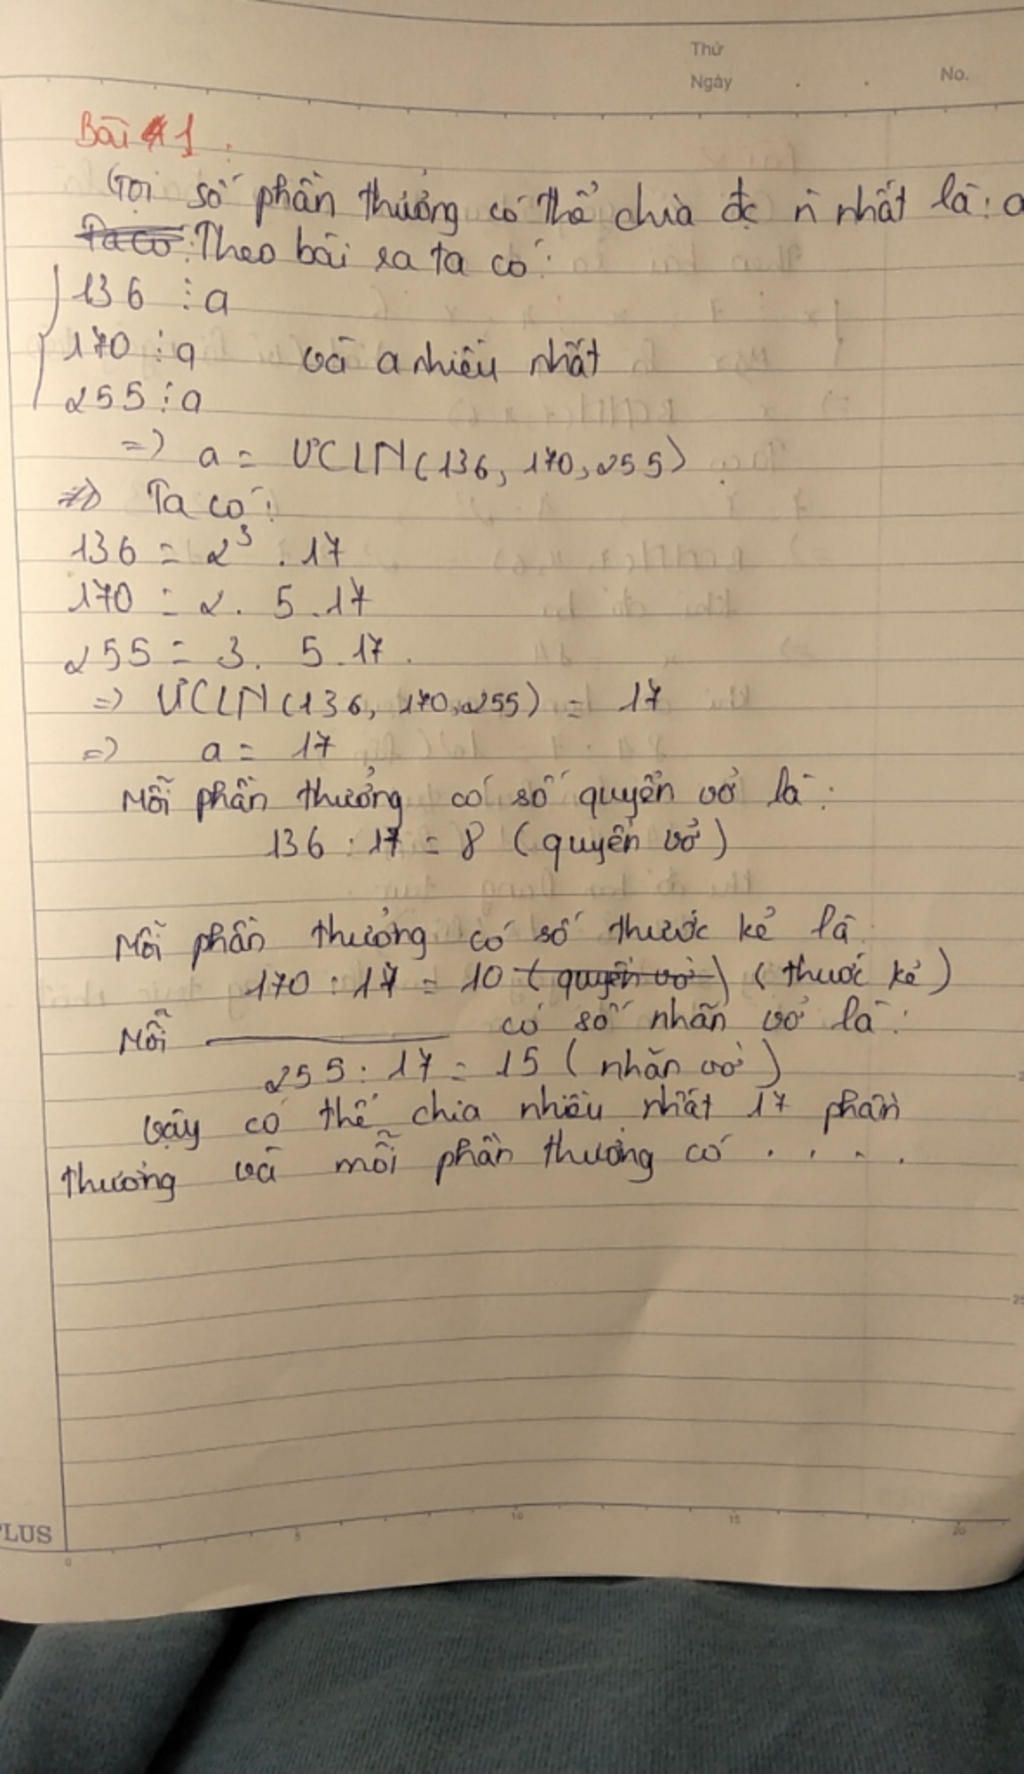 Thứ
Ngày . . No.
Bài 1 :
Gọi số phần thưởng có thể chia đc n nhất là: a
Ta có: Theo bài ra ta có:
136 ⋮ a
170 ⋮ a và a nhiều nhất
255 ⋮ a
=> a = ƯCLN(136, 170, 255)
=> Ta có:
136 = 2³ . 17
170 = 2. 5 .17
255 = 3. 5.17.
=> ƯCLN(136, 170, 255) = 17
=> a = 17
Mỗi phần thưởng có số quyển vở là:
136 : 17 = 8 (quyển vở)
Mỗi phần thưởng có số thước kẻ là
170 : 17 = 10 (quyển vở) (thước kẻ)
Mỗi ———— có số nhãn vở là:
255 : 17 = 15 (nhãn vở)
Vậy có thể chia nhiều nhất 17 phần
thưởng và mỗi phần thưởng có . . . .
25
PLUS
0 5 10 15 20